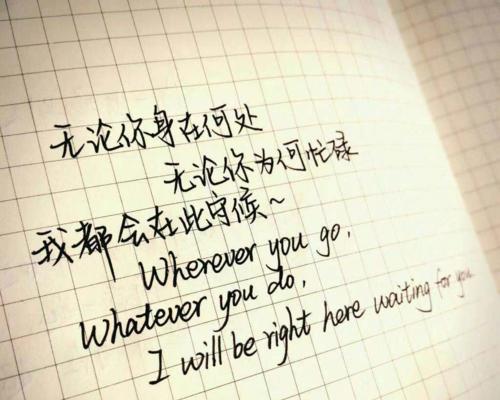 无论你身在何处
无论你为何忙碌
我都会在此守候~
Wherever you go,
Whatever you do,
I will be right here waiting for you